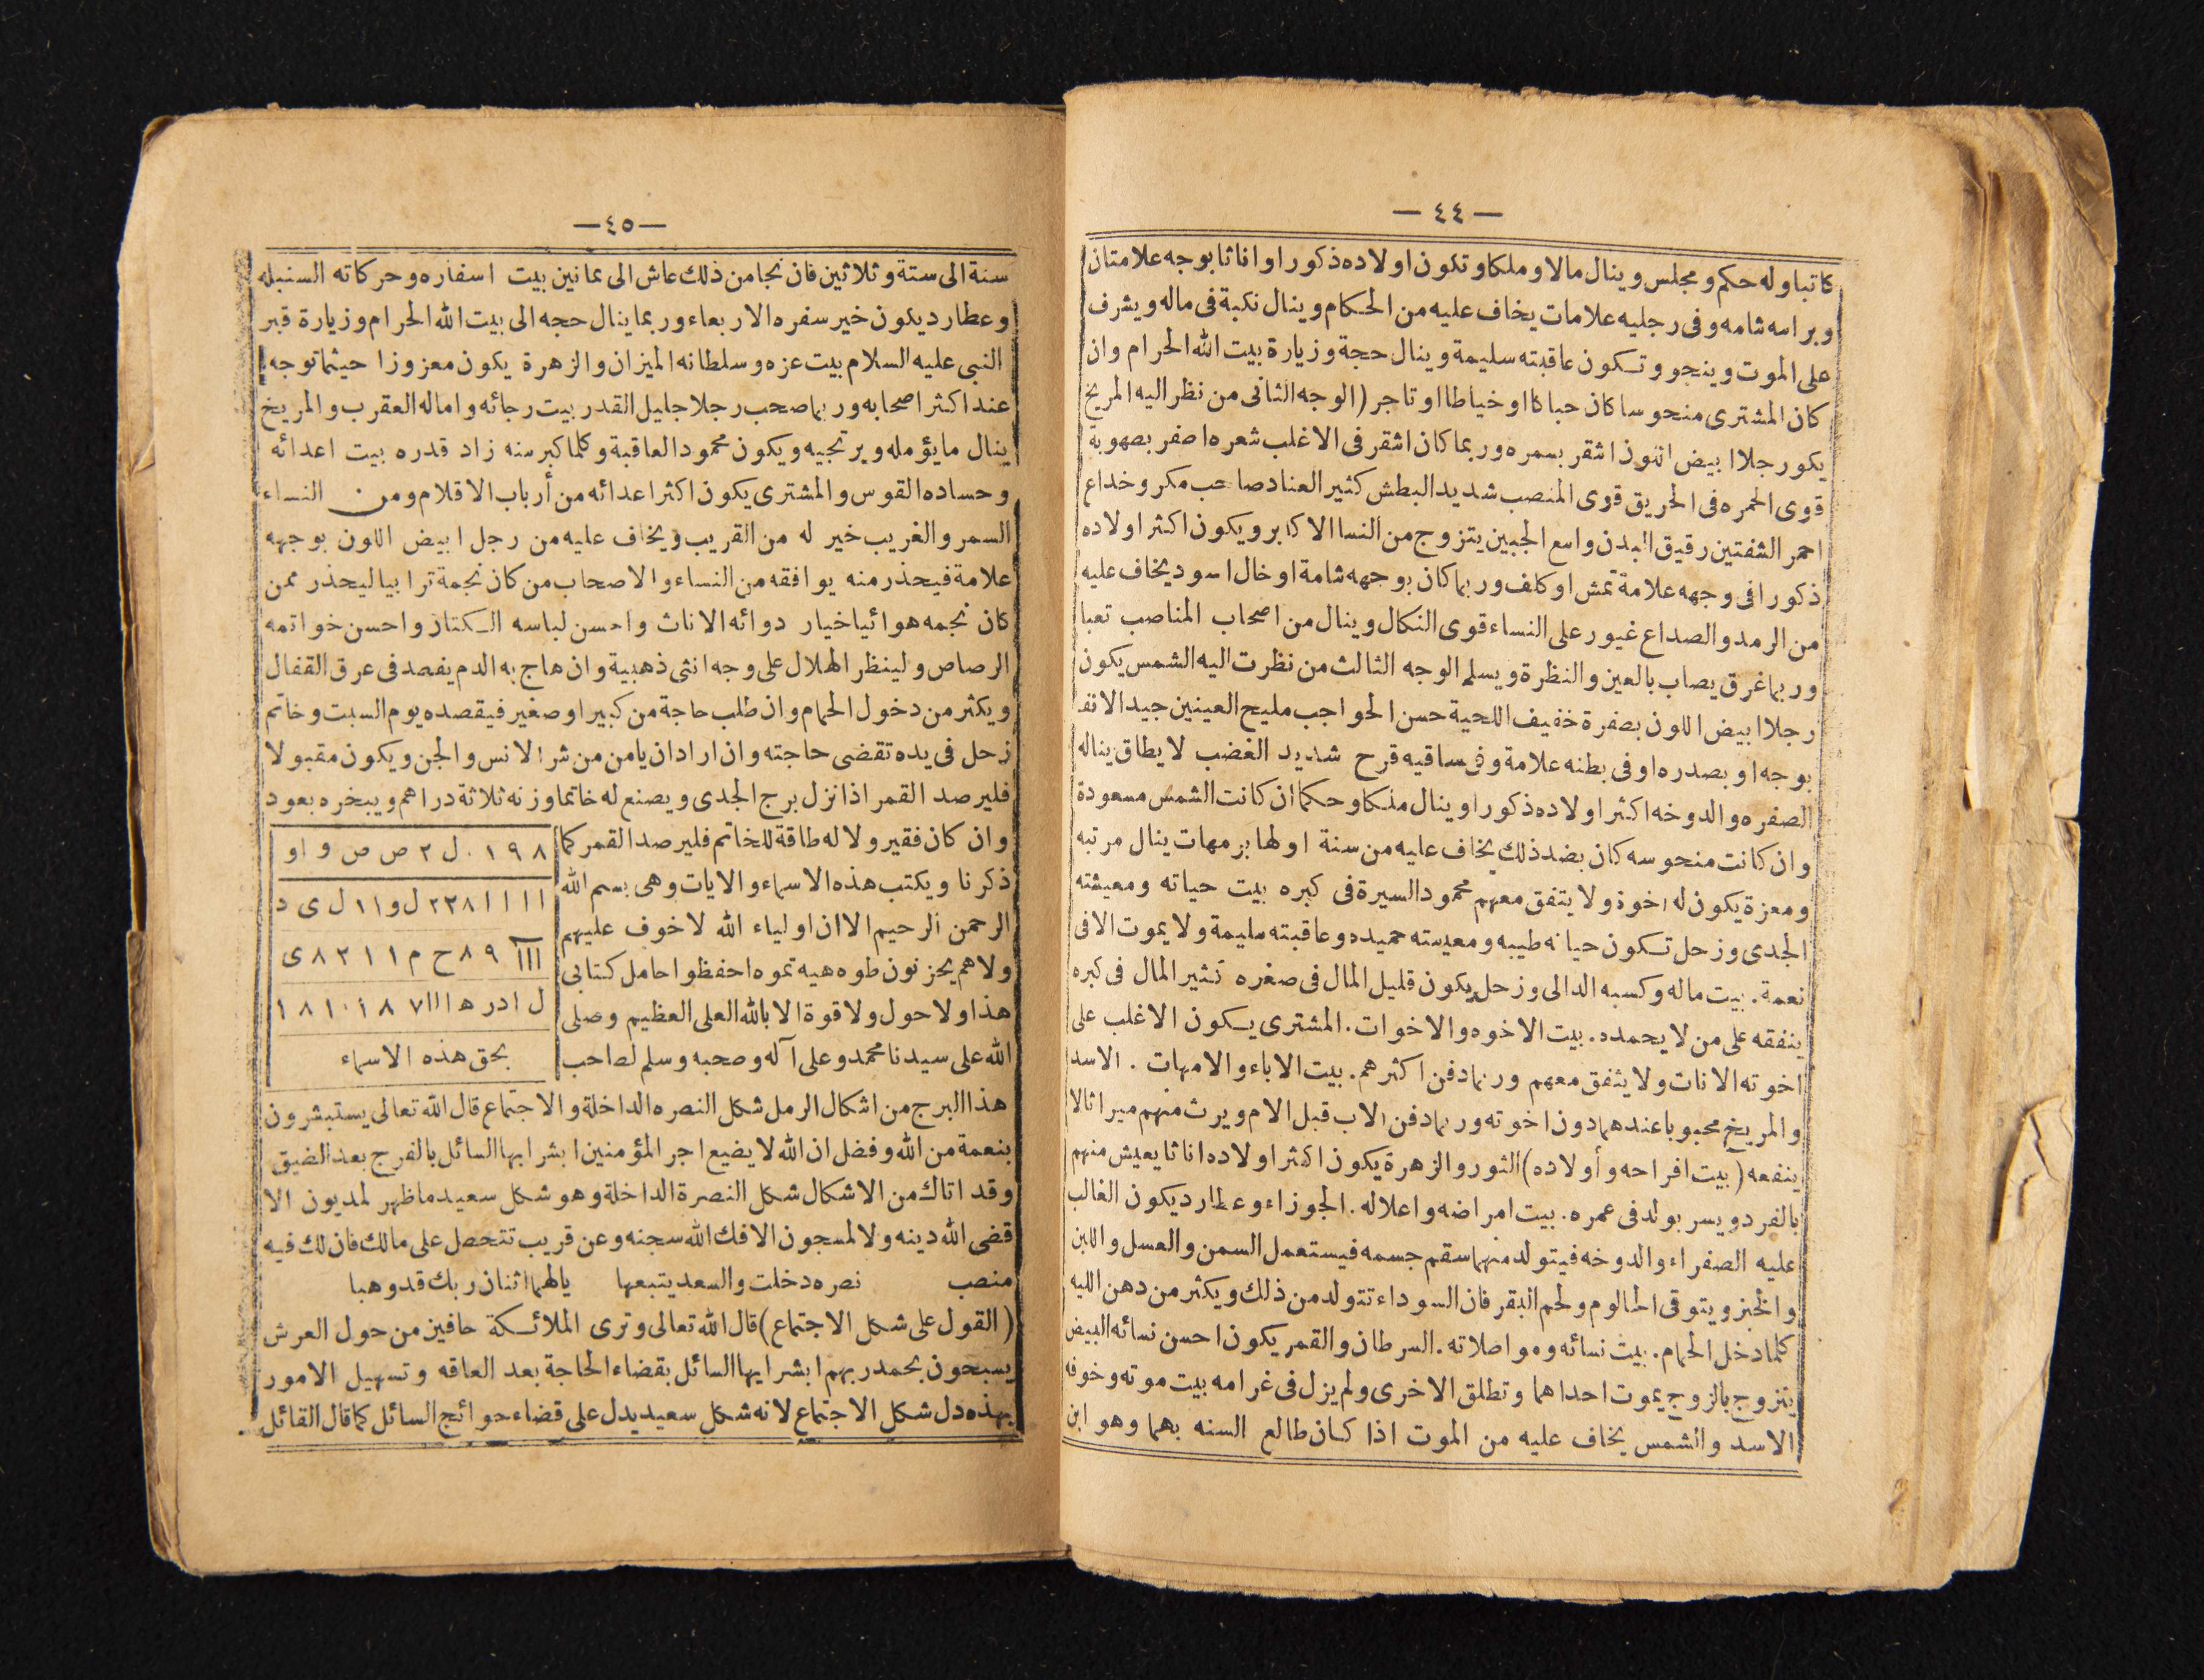 — ٤٤ —
كاتبا وله حكم ومجلس وينال مالا وملكا وتكون اولاده ذكورا واناثا بوجه علامتان
وبراسه شامه وفى رجليه علامات يخاف عليه من الحكام وينال نكبة فى ماله ويشرف
على الموت وينجو وتكون عاقبته سليمة وينال حجة وزيارة بيت الله الحرام وان
كان المشترى منحوسا كان حباكا او خياطا او تاجر (الوجه الثانى من نظر اليه المريخ
يكور جلا ابيض اللون اشقر بسمره وربما كان اشقر فى الاغلب شعره اصفر بصهوبة
قوى الحمره فى الحريق قوى المنصب شديد البطش كثير العناد صاحب مكر وخداع
احمر الشفتين رقيق البدن واسع الجبين يتزوج من النسا الاكابر ويكون اكثر اولاده
ذكورا فى وجهه علامة نمش او كلف وربما كان بوجهه شامة او خال اسود يخاف عليه
من الرمد والصداع غيور على النساء قوى النكال وينال من اصحاب المناصب تعبا
وربما غرق يصاب بالعين والنظرة ويسلم الوجه الثالث من نظرت اليه الشمس يكون
رجلا ابيض اللون بصفرة خفيف اللحية حسن الحواجب مليح العينين جيد الانف
بوجه او بصدره او فى بطنه علامة وفى ساقيه قرح شديد الغضب لا يطاق يناله
الصفره والدوخه اكثر اولاده ذكورا وينال ملكا وحكما ان كانت الشمس مسعودة
وان كانت منحوسه كان بضد ذلك يخاف عليه من سنة اولها برمهات ينال مرتبه
ومعزة يكون له اخوة ولا يتفق معهم محمود السيرة فى كبره بيت حياته ومعيشته
الجدى وزحل تكون حياته طيبه ومعيسته حميده وعاقبته سليمة ولا يموت الا فى
نعمة . بيت ماله وكسبه الدالى وزحل يكون قليل المال فى صغره كثير المال فى كبره
ينفقه على من لا يحمده . بيت الاخوه والاخوات . المشترى يكون الاغلب على
اخوته الانات ولا يثفق معهم وربما دفن اكثرهم . بيت الاباء والامهات . الاسد
والمريخ محبوبا عندهما دون اخوته وربما دفن الاب قبل الام ويرث منهم ميراثا لا
ينفعه (بيت افراحه وأولاده) الثور والزهرة يكون اكثر اولاده اناثا يعيش منهم
بالفرد ويسر بولد فى عمره . بيت امراضه واعلاله . الجوزاء وعطارد يكون الغالب
عليه الصفراء والدوخه فيتولد منهما سقم جسمه فيستعمل السمن والعسل واللبن
والخبز ويتوقى الحالوم ولحم البقر فان السوداء تتولد من ذلك ويكثر من دهن الليه
كلما دخل الحمام . بيت نسائه ومواصلاته . السرطان والقمر يكون احسن نسائه البيض
يتزوج بالزوج يموت احداهما وتطلق الاخرى ولم يزل فى غرامه بيت موته وخوفه
الاسد والشمس يخاف عليه من الموت اذا كان طالع السنه بهما وهو ابن
— ٤٥ —
سنة الى ستة وثلاثين فان نجا من ذلك عاش الى ثمانين بيت اسفاره وحركاته السنبله
وعطارد يكون خير سفره الاربعاء وربما ينال حجه الى بيت الله الحرام وزيارة قبر
النبى عليه السلام بيت عزه وسلطانه الميزان والزهرة يكون معزوزا حيثما توجه
عند اكثر اصحابه وربما صحب رجلا جليل القدر بيت رجائه واماله العقرب والمريخ
ينال ما يؤمله ويرتجيه ويكون محمود العاقبة وكلما كبر سنه زاد قدره بيت اعدائه
وحساده القوس والمشترى يكون اكثر اعدائه من أرباب الاقلام ومن النساء
السمر والغريب خير له من القريب ويخاف عليه من رجل ابيض اللون بوجهه
علامة فيحذر منه يوافقه من النساء والاصحاب من كان نجمة ترابيا ليحذر ممن
كان نجمه هوائيا خيار دوائه الاناث واحسن لباسه الكتان واحسن خواتمه
الرصاص ولينظر الهلال على وجه انثى ذهبية وان هاج به الدم يفصد فى عرق القفال
ويكثر من دخول الحمام وان طلب حاجة من كبير او صغير فيقصده يوم السبت وخاتم
زحل فى يده تقضى حاجته وان اراد ان يامن من شر الانس والجن ويكون مقبولا
فليرصد القمر اذا نزل برج الجدى ويصنع له خاتما وزنه ثلاثة دراهم ويبخره بعود
وان كان فقير ولا له طاقة للخاتم فليرصد القمر كما
ذكرنا ويكتب هذه الاسماء والايات وهى بسم الله
الرحمن الرحيم الا ان اولياء الله لا خوف عليهم
ولا هم يحزنون طوه هيه تموه احفظوا حامل كتابى
هذا ولا حول ولا قوة الا بالله العلى العظيم وصلى
الله على سيدنا محمد وعلى آله وصحبه وسلم لصاحب
٨ ٩ ١ ٠ ل ٢ ص ص و او
ا ا ا ا ٢٢٨ ل و ١١ ل ى د
ااا ٨٩ ح م ١ ١ ٨٢ ى
ل ادر ه ااا ٧ ٨ ١٠١ ٨ ١
بحق هذه الاسماء
هذا البرج من اشكال الرمل شكل النصره الداخلة والاجتماع قال الله تعالى يستبشرون
بنعمة من الله وفضل ان الله لا يضيع اجر المؤمنين ابشر ايها السائل بالفرج بعد الضيق
وقد اتاك من الاشكال شكل النصرة الداخلة وهو شكل سعيد ما ظهر لمديون الا
قضى الله دينه ولا لمسجون الا فك الله سجنه وعن قريب تتحصل على مالك فان لك فيه
منصب نصره دخلت والسعد يتبعها يا لهما اثنان ربك قد وهبا
(القول على شكل الاجتماع) قال الله تعالى وترى الملائكة حافين من حول العرش
يسبحون بحمد ربهم ابشر ايها السائل بقضاء الحاجة بعد العاقه وتسهيل الامور
بهذه دل شكل الاجتماع لانه شكل سعيد يدل على قضاء حوائج السائل كما قال القائل